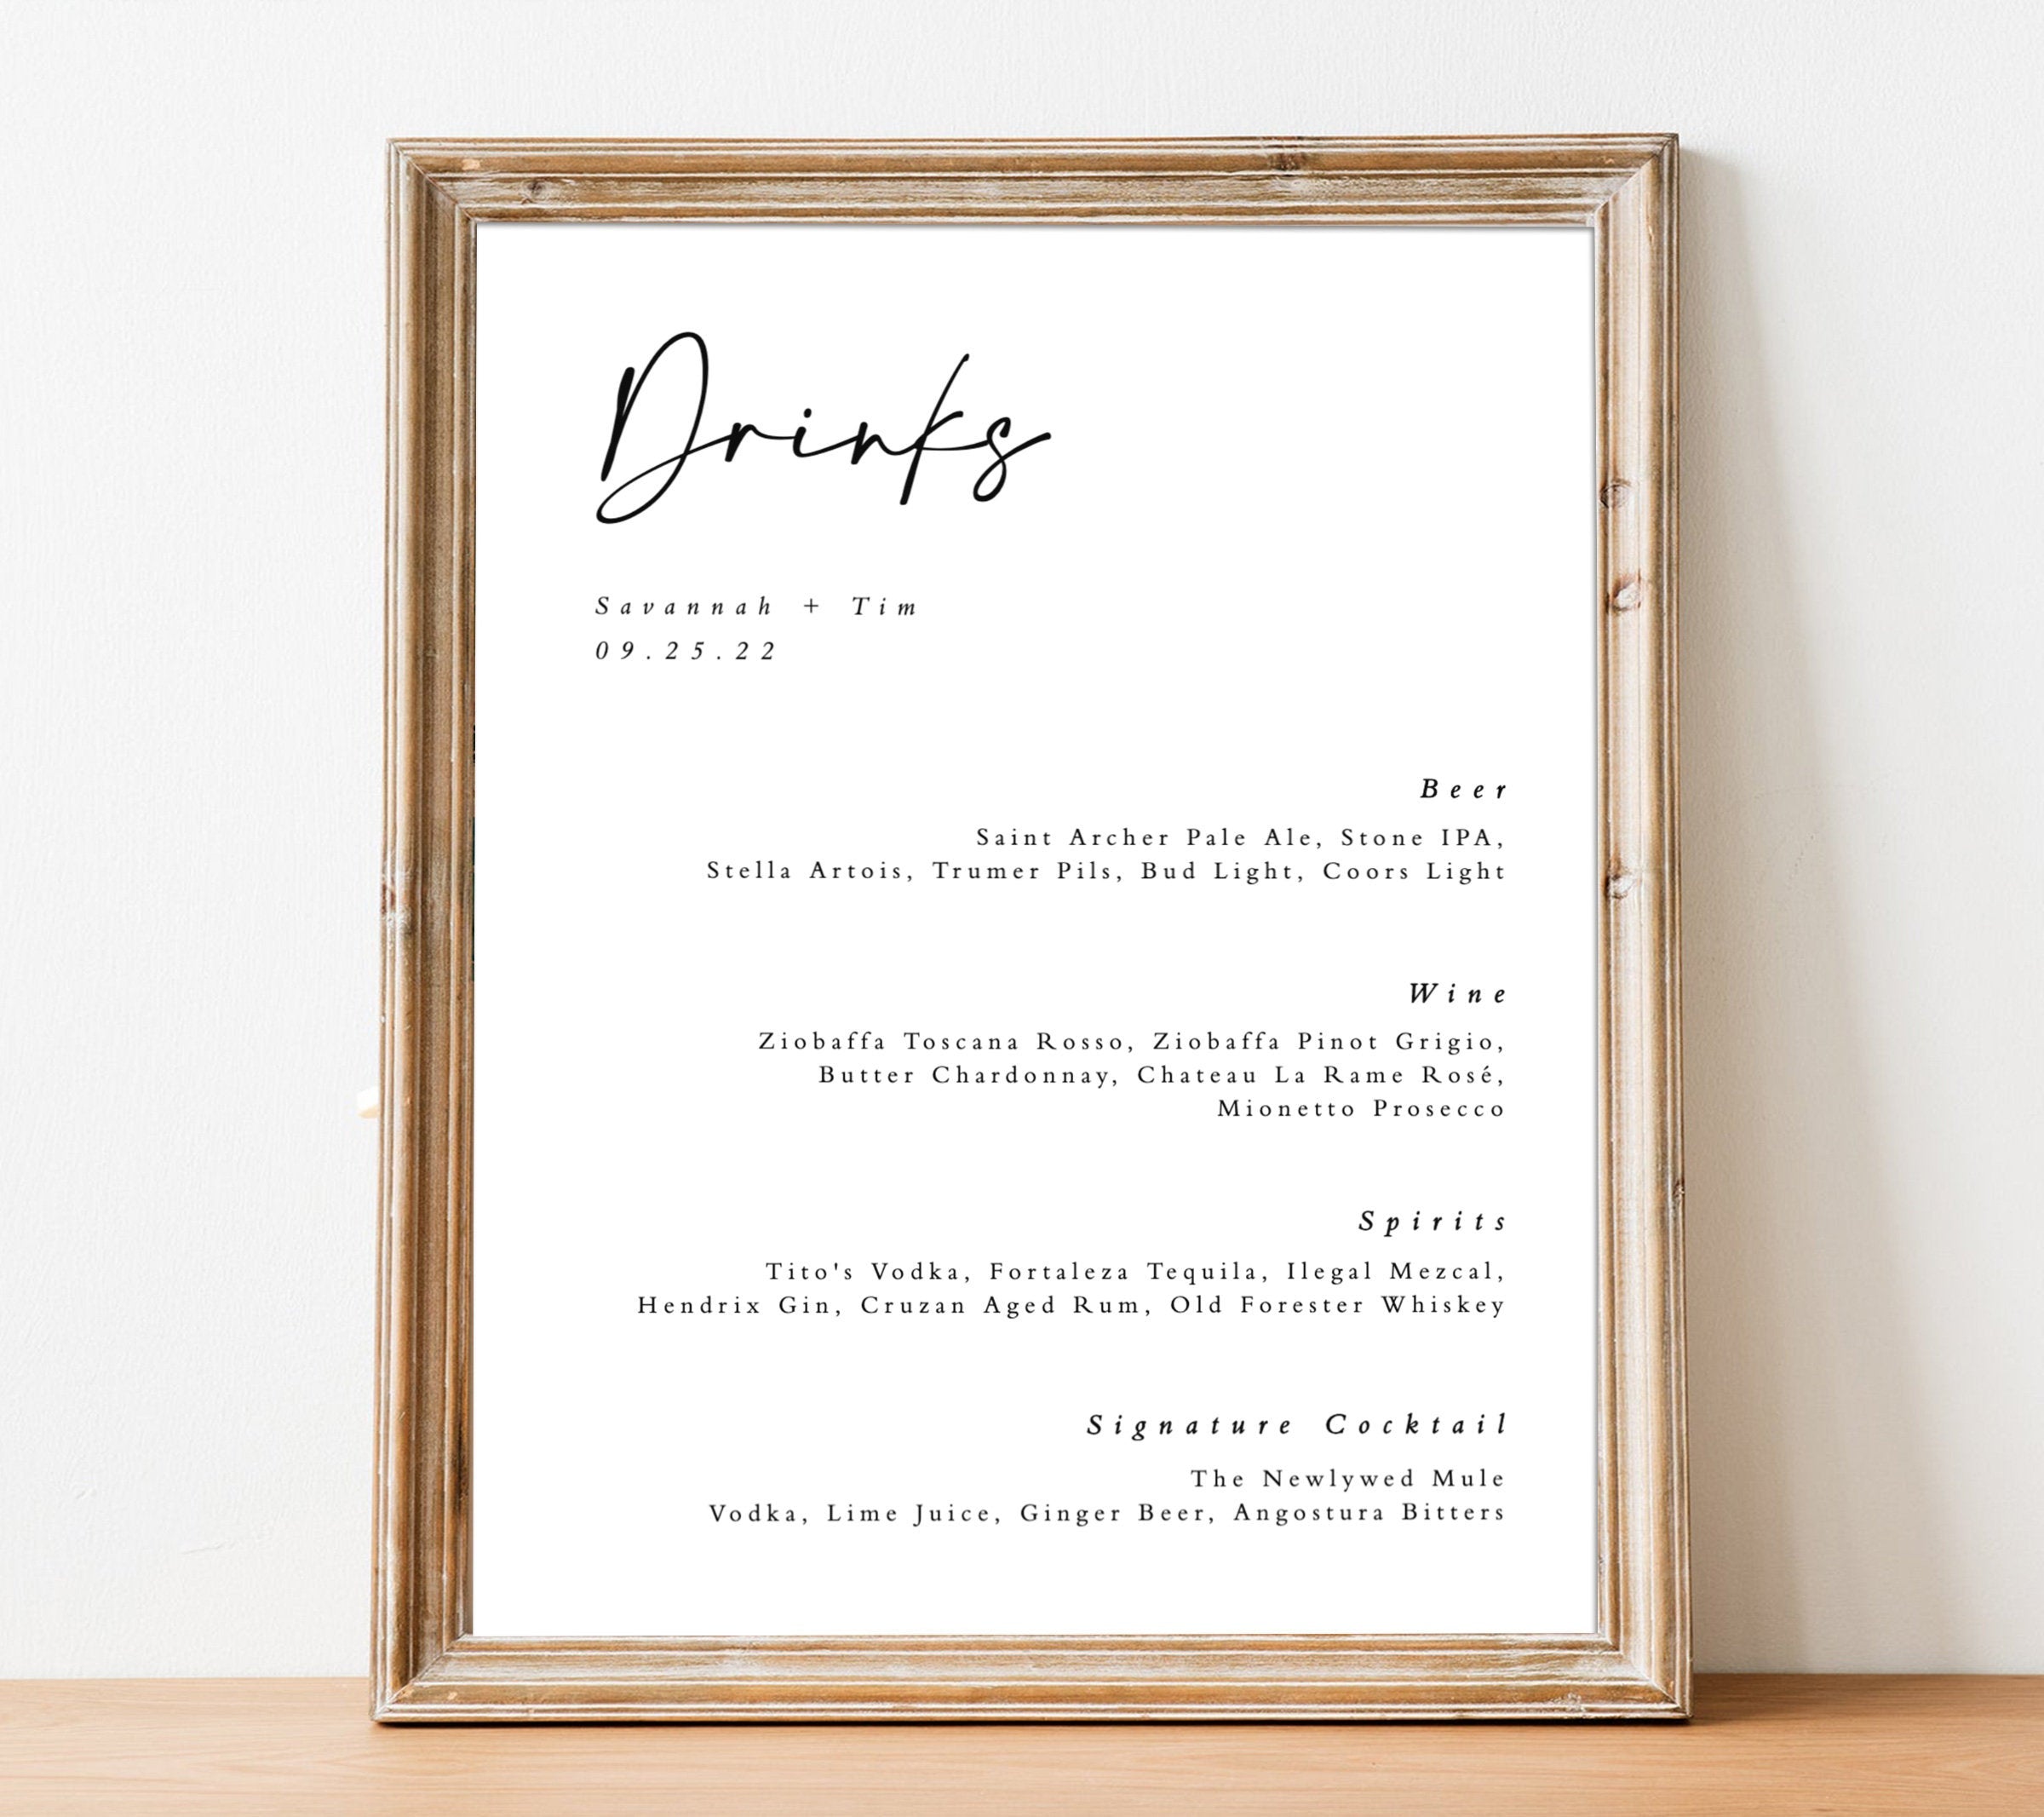 Drinks
Savannah + Tim
09.25.22
Beer
Saint Archer Pale Ale, Stone IPA,
Stella Artois, Trumer Pils, Bud Light, Coors Light
Wine
Ziobaffa Toscana Rosso, Ziobaffa Pinot Grigio,
Butter Chardonnay, Chateau La Rame Rosé,
Mionetto Prosecco
Spirits
Tito's Vodka, Fortaleza Tequila, Ilegal Mezcal,
Hendrix Gin, Cruzan Aged Rum, Old Forester Whiskey
Signature Cocktail
The Newlywed Mule
Vodka, Lime Juice, Ginger Beer, Angostura Bitters